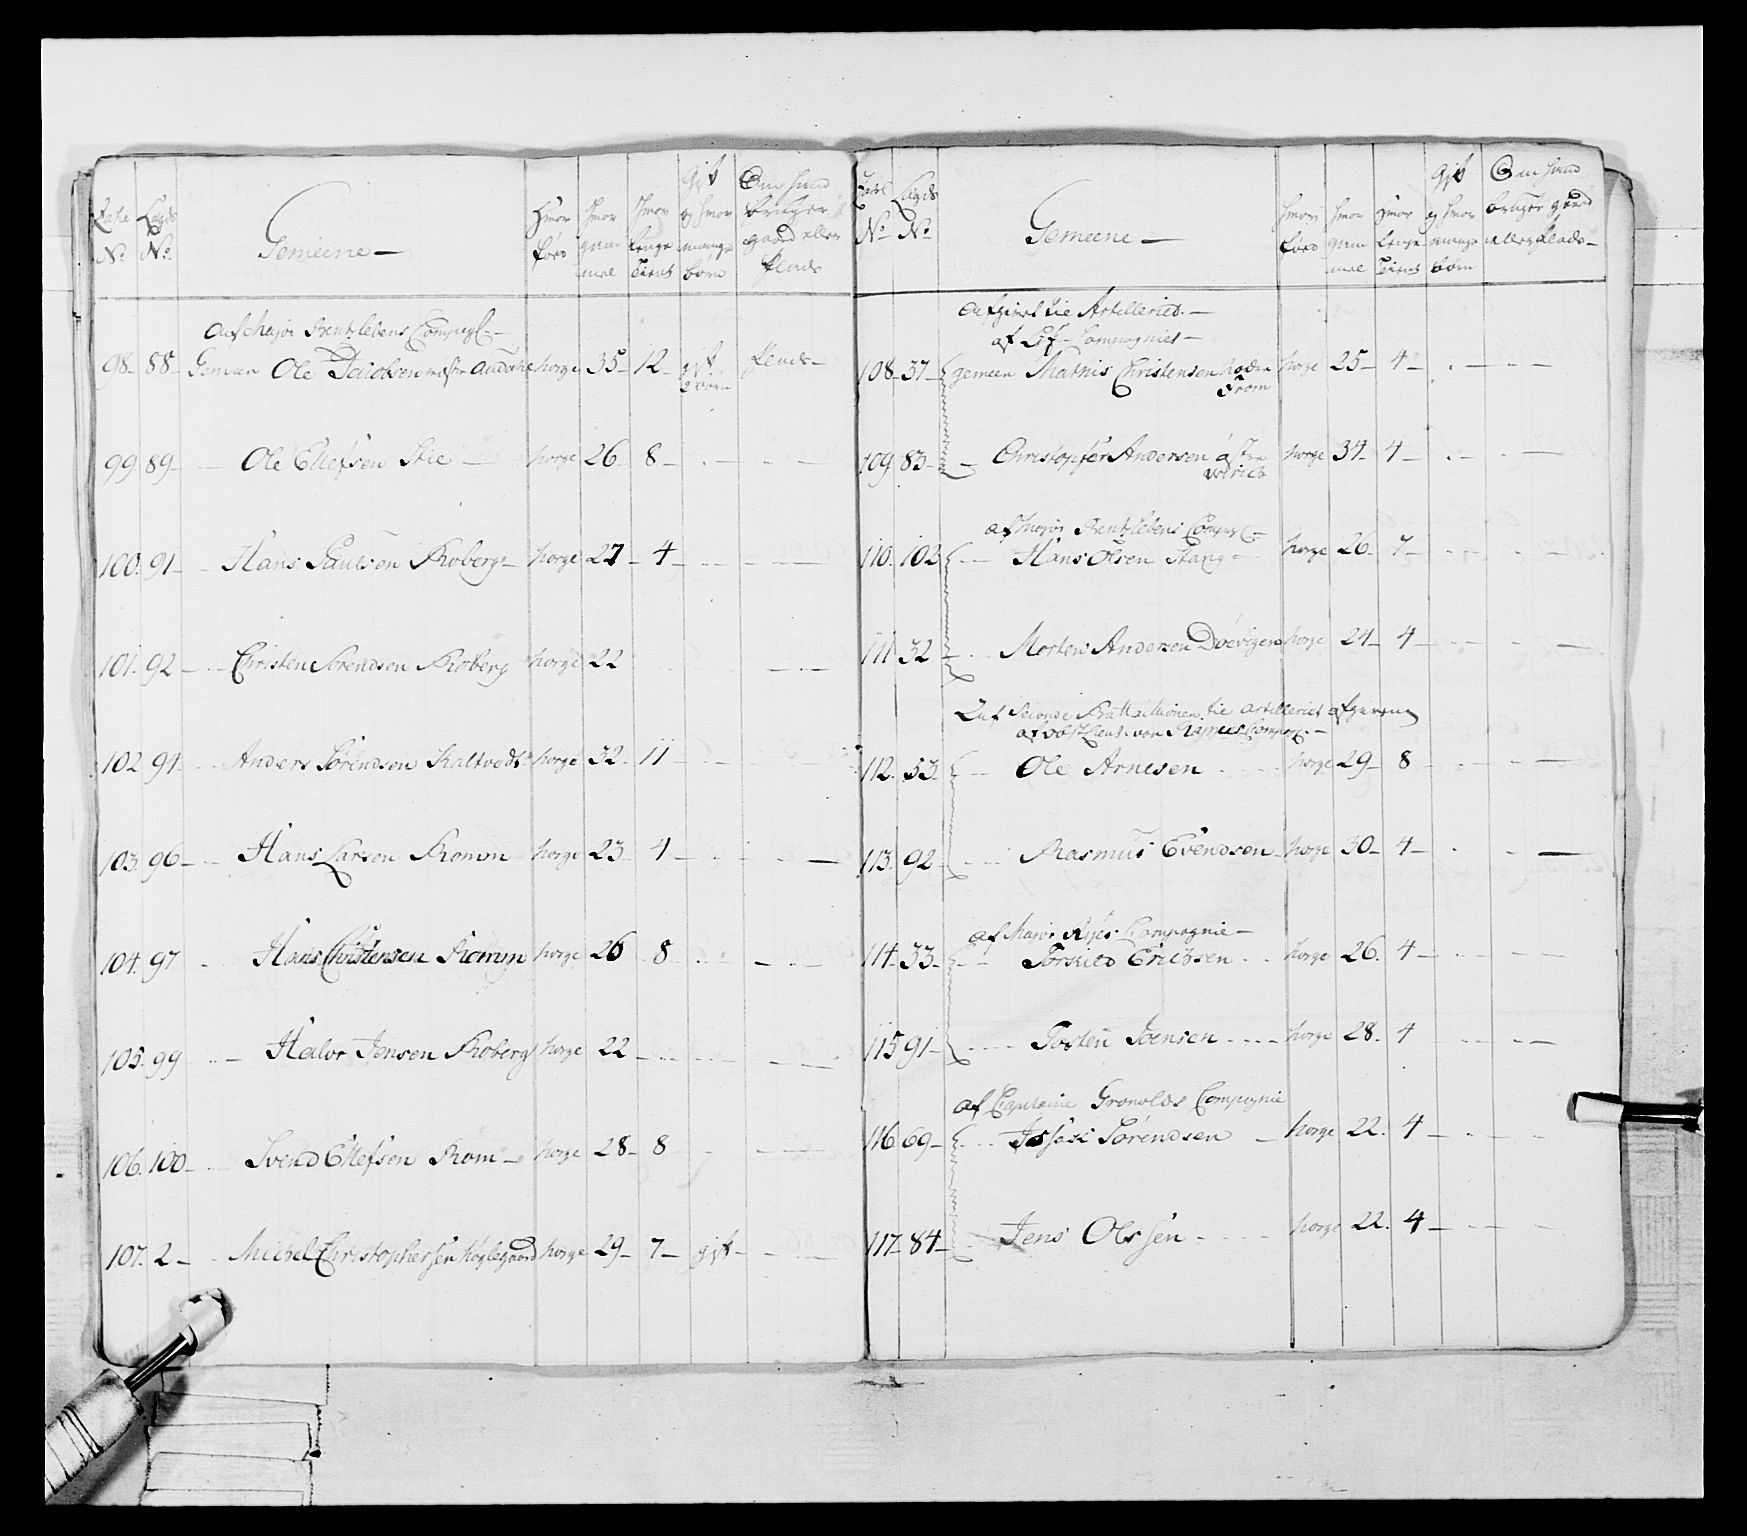 No.
Lægds
No.
Gemeene
Hvor
føed
Hvor
gam
mel
Hvor
lenge
tient
Gift
og hvor
mange
børn
Om hand
bruger
gaard eller
Plads
af Major Rentzlebens Compagl.
98. 88 Gemeen Ole Jacobsen norge 35 12 gift 2 børn Plads
99. 89 Ole Ellefsen Stie norge 26 8
100. 91 Hans Paulsen Roberg norge 27 4
101. 92 Christen Sørendsen Roberg norge 22
102. 94 Anders Sørendsen Kaltvedt norge 32 11
103. 96 Hans Larsen Romm norge 23 4
104. 97 Hans Christensen Romm norge 26 8
105. 99 Halvor Jensen Roberg norge 22
106. 100 Svend Ellefsen Rom norge 28 8
107. 2 Michel Christophersen Høylegaard norge 29 7 gift
No.
Lægds
No.
Gemeene
Hvor
føed
Hvor
gam
mel
Hvor
lenge
tient
Gift
og hvor
mange
børn
Om hand
bruger gaard
eller Plads
Afgivet til Artilleriet.
af Lif Compagniet
108. 37 gemeen Mathis Christensen norge 25 4
From
109. 83 Christopfer Andersen østre norge 34 4
af Major Rentzlebens Compagl.
110. 102 Hans Olsen Stang norge 26 7
111. 32 Morten Andersen Døevigen norge 24 4
Af Seconde Battaillionen til Artilleriet afgiven
112. 53 Ole Arnesen norge 29 8
113. 92 Rasmus Evendsen norge 30 4
af Major Ryes Compagnie
114. 33 Torkild Erichsen norge 26 4
115. 91 Tosten Joensen norge 28 4
af Capitaine Gronolds Compagnie
116. 69 Sørendsen norge 22 4
117. 84 Jens Olssen norge 22 4